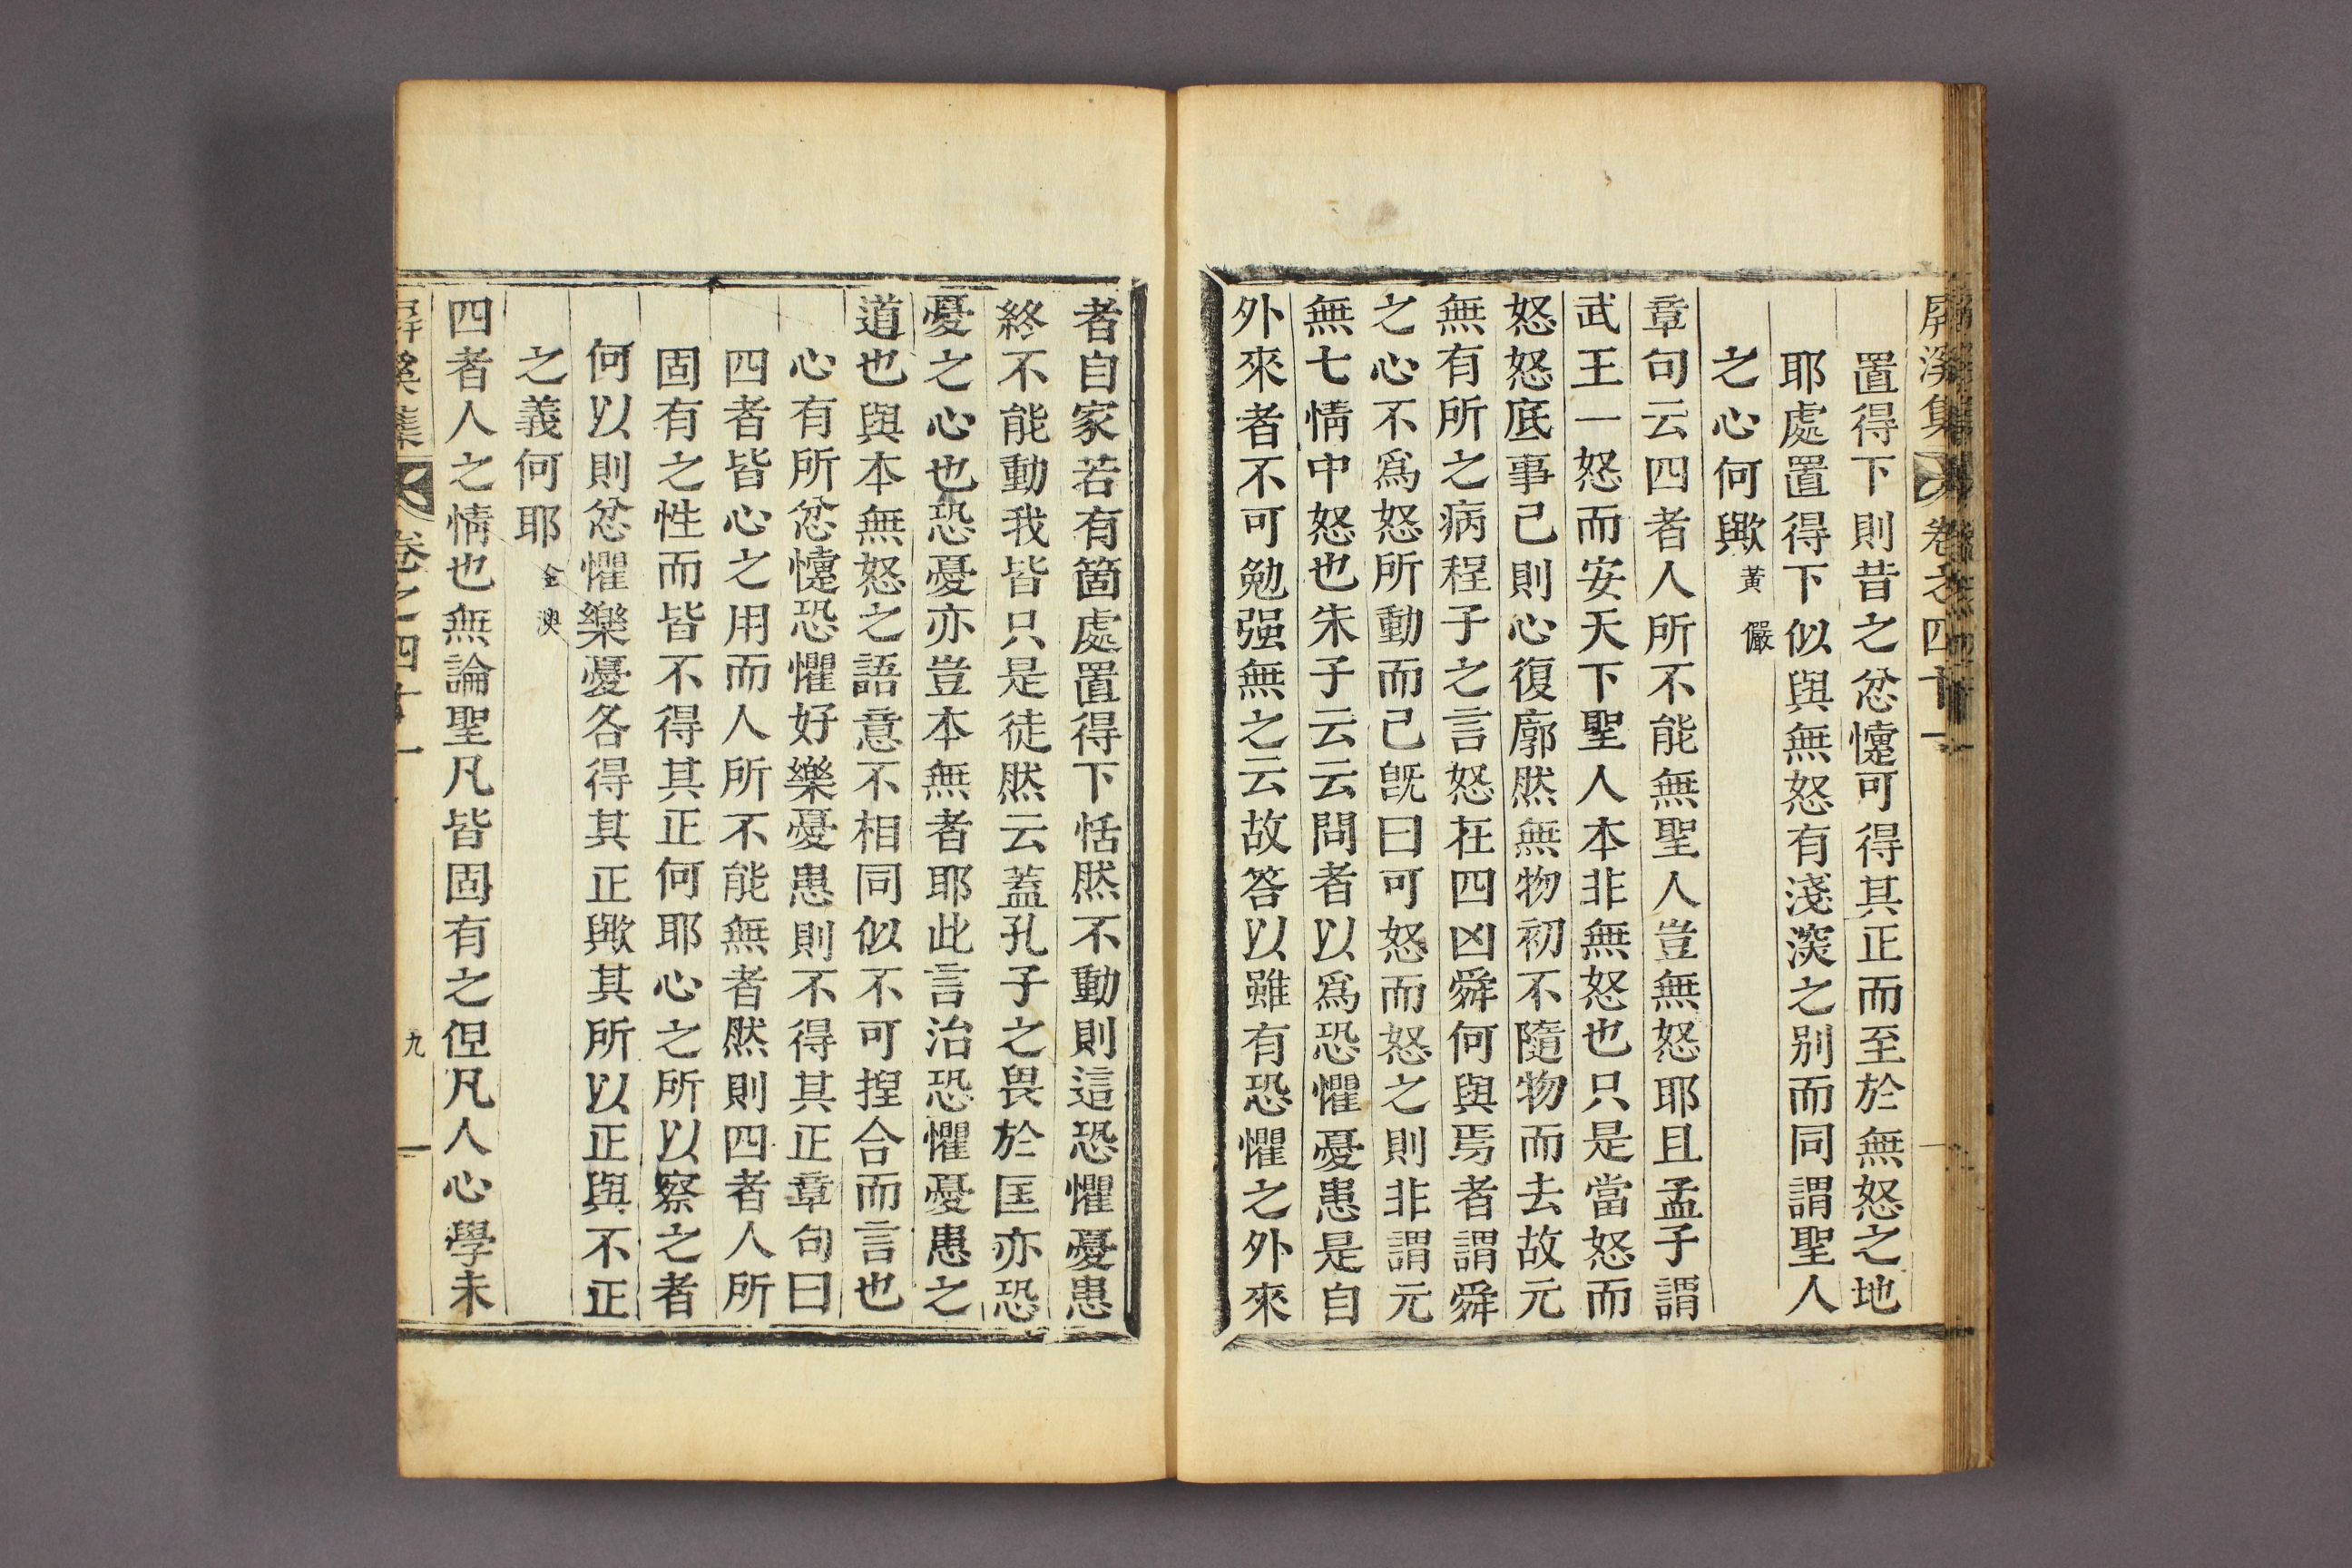 屛溪集 卷之四十一
置得下則昔之忿懥可得其正而至於無怒之地
耶處置得下似與無怒有淺深之别而同謂聖人
之心何歟 黃儼
章句云四者人所不能無聖人豈無怒耶且孟子謂
武王一怒而安天下聖人本非無怒也只是當怒而
怒怒底事已則心復廓然無物初不隨物而去故元
無有所之病程子之言怒在四凶舜何與焉者謂舜
之心不爲怒所動而已旣曰可怒而怒之則非謂元
無七情中怒也朱子云云問者以爲恐懼憂患是自
外來者不可勉强無之云故答以雖有恐懼之外來
者自家若有箇處置得下恬然不動則這恐懼憂患
終不能動我皆只是徒然云蓋孔子之畏於匡亦恐
憂之心也恐憂亦豈本無者耶此言治恐懼憂患之
道也與本無怒之語意不相同似不可捏合而言也
心有所忿懥恐懼好樂憂患則不得其正章句曰
四者皆心之用而人所不能無者然則四者人所
固有之性而皆不得其正何耶心之所以察之者
何以則忿懼樂憂各得其正歟其所以正與不正
之義何耶 金澳
四者人之情也無論聖凡皆固有之但凡人心學未
屛溪集 卷之四十一 九